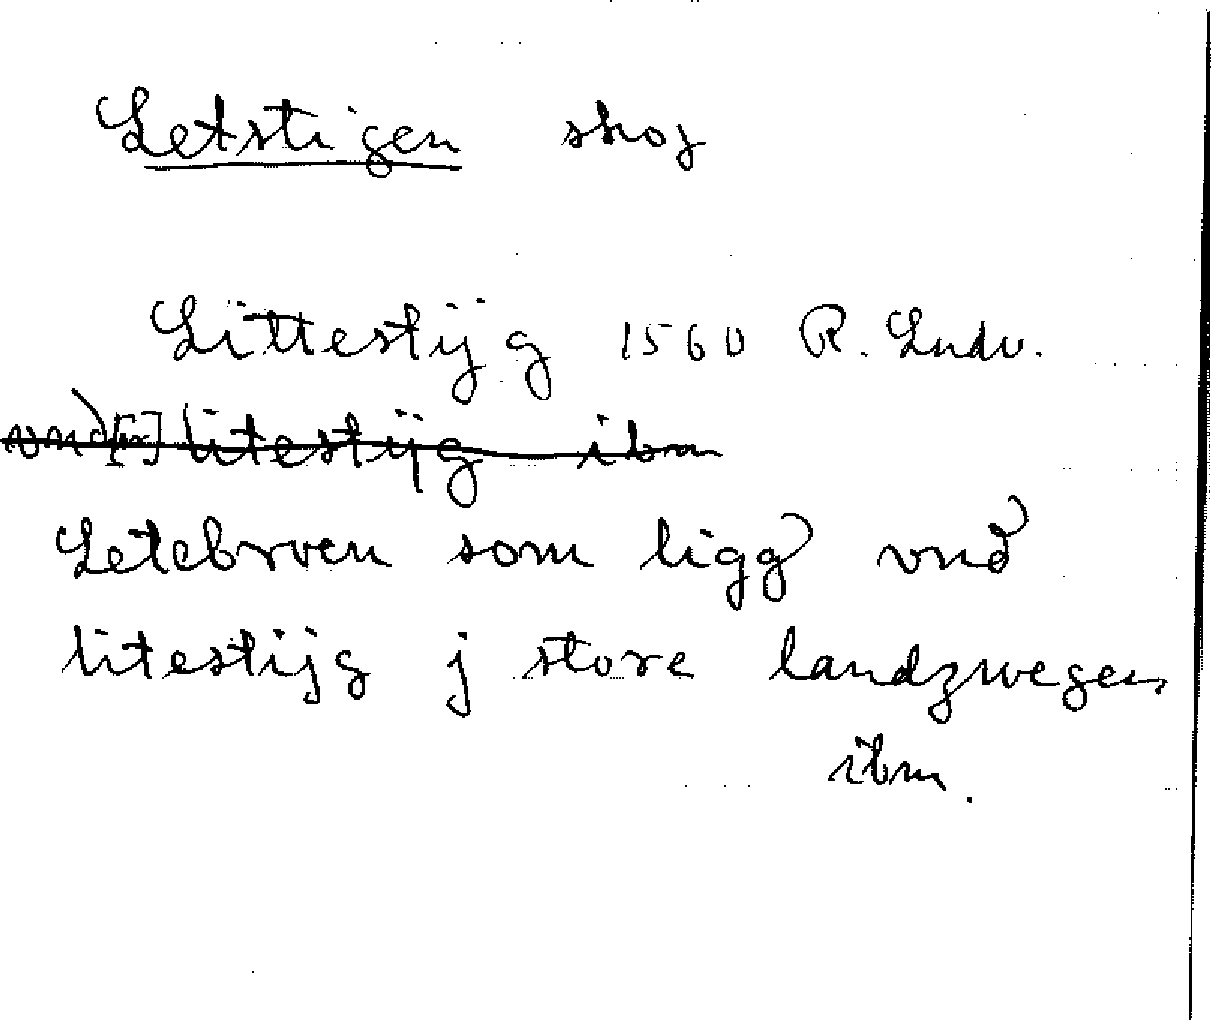 Letstigen skog
Littestijg 1560 R. Ludv.
vnd[er] litestijg ibm
Letebrven som ligg vnd
litestijg j store landzwegen
ibm.